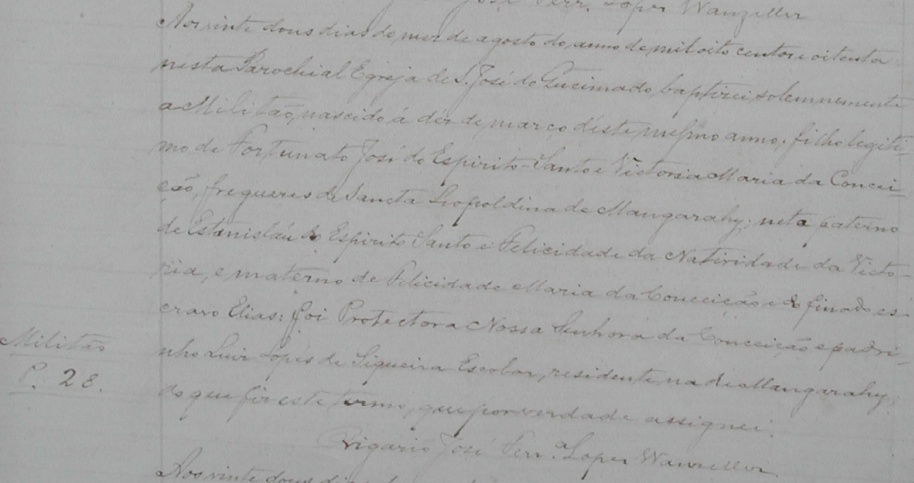 José Ferr. Lopes Wanzeller
Aos vinte dous dias do mez de agosto do anno de mil oito centos e oitenta
nesta Parochial Egreja de S. José do Queimado, baptizei solemnemente
a Militão, nascido á dez de março d'este mesmo anno; filho legiti-
mo de Fortunato José do Espirito-Santo e Victoria Maria da Concei-
ção, freguezes de Sancta Leopoldina de Mangarahy; neto paterno
de Estanisláu do Espirito Santo e Felicidade da Natividade da Victo-
ria, e materno de Felicidade Maria da Conceição e do finado es-
cravo Elias: foi Protectora Nossa Senhora da Conceição e padri-
nho Luiz Lopes de Siqueira Escobar, residente na de Mangarahy;
Militão
P. 28.
do que fiz este termo, que por verdade assignei.
Vigario José Ferr.ª Lopes Wanzeller
Aos vinte dous dias